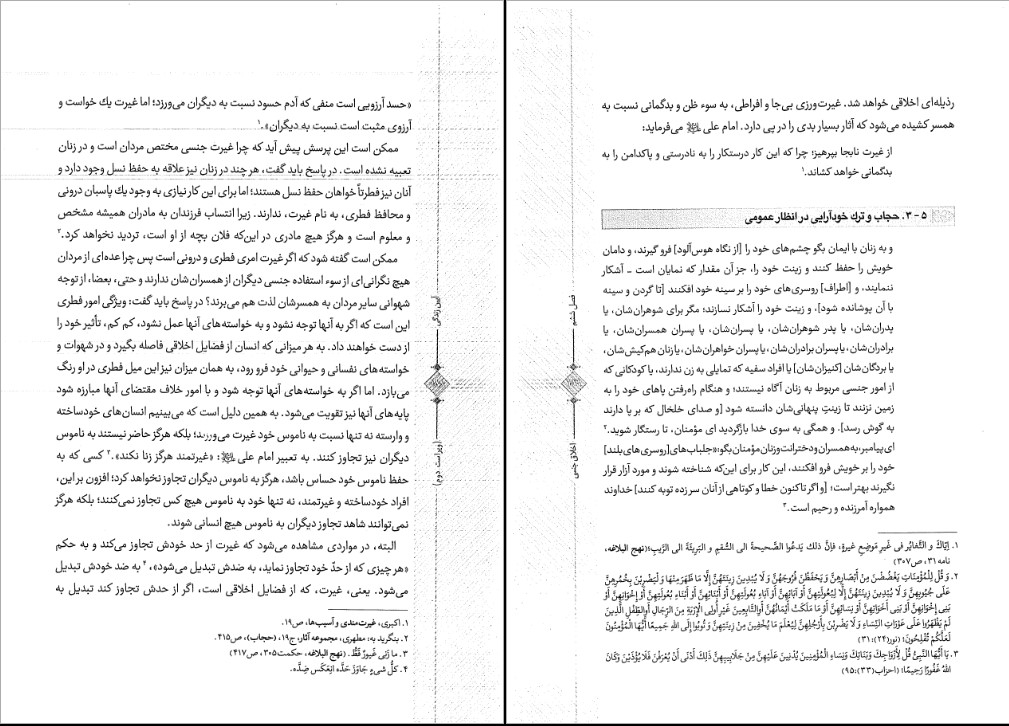 «حسد آرزویی است منفی که آدم حسود نسبت به دیگران می‌ورزد؛ اما غیرت یك خواست و
آرزوی مثبت است نسبت به دیگران».۱
ممکن است این پرسش پیش آید که چرا غیرت جنسی مختص مردان است و در زنان
تعبیه نشده است. در پاسخ باید گفت، هر چند در زنان نیز علاقه به حفظ نسل وجود دارد و
آنان نیز فطرتاً خواهان حفظ نسل هستند؛ اما برای این کار نیازی به وجود یك پاسبان درونی
و محافظ فطری، به نام غیرت، ندارند. زیرا انتساب فرزندان به مادران همیشه مشخص
و معلوم است و هرگز هیچ مادری در این‌که فلان بچه از او است، تردید نخواهد کرد.۲
ممکن است گفته شود که اگر غیرت امری فطری و درونی است پس چرا عده‌ای از مردان
هیچ نگرانی‌ای از سوء استفاده جنسی دیگران از همسران‌شان ندارند و حتی، بعضا، از توجه
شهوانی سایر مردان به همسرشان لذت هم می‌برند؟ در پاسخ باید گفت: ویژگی امور فطری
این است که اگر به آنها توجه نشود و به خواسته‌های آنها عمل نشود، کم کم، تأثیر خود را
از دست خواهند داد. به هر میزانی که انسان از فضایل اخلاقی فاصله بگیرد و در شهوات و
خواسته‌های نفسانی و حیوانی خود فرو رود، به همان میزان نیز این میل فطری در او رنگ
می‌بازد. اما اگر به خواسته‌های آنها توجه شود و با امور خلاف مقتضای آنها مبارزه شود
پایه‌های آنها نیز تقویت می‌شود. به همین دلیل است که می‌بینیم انسان‌های خودساخته
و وارسته نه تنها نسبت به ناموس خود غیرت می‌ورزند؛ بلکه هرگز حاضر نیستند به ناموس
دیگران نیز تجاوز کنند. به تعبیر امام علی علیه‌السلام: «غیرتمند هرگز زنا نکند».۳ کسی که به
حفظ ناموس خود حساس باشد، هرگز به ناموس دیگران تجاوز نخواهد کرد؛ افزون بر این،
افراد خودساخته و غیرتمند، نه تنها خود به ناموس هیچ کس تجاوز نمی‌کنند؛ بلکه هرگز
نمی‌توانند شاهد تجاوز دیگران به ناموس هیچ انسانی شوند.
البته، در مواردی مشاهده می‌شود که غیرت از حد خودش تجاوز می‌کند و به حکم
«هر چیزی که از حدّ خود تجاوز نماید، به ضدش تبدیل می‌شود»،۴ به ضد خودش تبدیل
می‌شود. یعنی، غیرت، که از فضایل اخلاقی است، اگر از حدش تجاوز کند تبدیل به
۱. اکبری، غیرت‌مندی و آسیب‌ها، ص۱۹.
۲. بنگرید به: مطهری، مجموعه آثار، ج۱۹، (حجاب)، ص۴۱۵.
۳. ما زَنی غَیورٌ قَطُّ. (نهج البلاغه، حکمت۳۰۵، ص۴۱۷)
۴. کلُّ شیءٍ جاوَزَ حَدَّه انعَکَس ضِدَّه.
آیین زندگی
(ویراست دوم)
فصل ششم
اخلاق جنسی
رذیله‌ای اخلاقی خواهد شد. غیرت‌ورزی بی‌جا و افراطی، به سوء ظن و بدگمانی نسبت به
همسر کشیده می‌شود که آثار بسیار بدی را در پی دارد. امام علی علیه‌السلام می‌فرماید:
از غیرت نابجا بپرهیز؛ چرا که این کار درستکار را به نادرستی و پاکدامن را به
بدگمانی خواهد کشاند.۱
۵ - ۳. حجاب و ترك خودآرایی در انظار عمومی
و به زنان با ایمان بگو چشم‌های خود را [از نگاه هوس‌آلود] فرو گیرند، و دامان
خویش را حفظ کنند و زینت خود را، جز آن مقدار که نمایان است - آشکار
ننمایند، و [اطراف] روسری‌های خود را بر سینه خود افکنند [تا گردن و سینه
با آن پوشانده شود]، و زینت خود را آشکار نسازند؛ مگر برای شوهران‌شان، یا
پدران‌شان، یا پدر شوهران‌شان، یا پسران‌شان، یا پسران همسران‌شان، یا
برادران‌شان، یا پسران برادران‌شان، یا پسران خواهران‌شان، یا زنان هم‌کیش‌شان،
یا بردگان‌شان [کنیزان‌شان] یا افراد سفیه که تمایلی به زن ندارند، یا کودکانی که
از امور جنسی مربوط به زنان آگاه نیستند؛ و هنگام راه‌رفتن پاهای خود را به
زمین نزنند تا زینتِ پنهانی‌شان دانسته شود [و صدای خلخال که بر پا دارند
به گوش رسد]. و همگی به سوی خدا بازگردید ای مؤمنان، تا رستگار شوید.۲
ای پیامبر، به همسران و دخترانت و زنان مؤمنان بگو: «جلباب‌های [روسری‌های بلند]
خود را بر خویش فرو افکنند، این کار برای این‌که شناخته شوند و مورد آزار قرار
نگیرند بهتر است؛ [و اگر تاکنون خطا و کوتاهی از آنان سر زده توبه کنند] خداوند
همواره آمرزنده و رحیم است.۳
۱. اِیّاكَ و التَّغایُرِ فی غَیرِ مَوضِعِ غیرةٍ، فإنَّ ذلك یَدعُوا الصَّحیحةَ الی السُّقمِ و البَریئَةَ الی الرَّیبِ؛ (نهج البلاغه،
نامه ۳۱، ص۳۰۷)
۲. وَ قُل لِلْمُؤْمِنَاتِ یَغْضُضْنَ مِنْ أَبْصَارِهِنَّ وَ یَحْفَظْنَ فُرُوجَهُنَّ وَ لَا یُبْدِینَ زِینَتَهُنَّ إِلَّا مَا ظَهَرَ مِنْهَا وَ لْیَضْرِبْنَ بِخُمُرِهِنَّ
عَلَی جُیُوبِهِنَّ وَ لَا یُبْدِینَ زِینَتَهُنَّ إِلَّا لِبُعُولَتِهِنَّ أَوْ آبَائِهِنَّ أَوْ آبَاءِ بُعُولَتِهِنَّ أَوْ أَبْنَائِهِنَّ أَوْ أَبْنَاءِ بُعُولَتِهِنَّ أَوْ إِخْوَانِهِنَّ أَوْ
بَنِی إِخْوَانِهِنَّ أَوْ بَنِی أَخَوَاتِهِنَّ أَوْ نِسَائِهِنَّ أَوْ مَا مَلَکَتْ أَیْمَانُهُنَّ أَوِ التَّابِعِینَ غَیْرِ أُولِی الْإِرْبَةِ مِنَ الرِّجَالِ أَوِ الطِّفْلِ الَّذِینَ
لَمْ یَظْهَرُوا عَلَی عَوْرَاتِ النِّسَاءِ وَ لَا یَضْرِبْنَ بِأَرْجُلِهِنَّ لِیُعْلَمَ مَا یُخْفِینَ مِنْ زِینَتِهِنَّ وَ تُوبُوا إِلَی اللهِ جَمِیعًا أَیُّهَا الْمُؤْمِنُونَ
لَعَلَّکُمْ تُفْلِحُونَ؛ (نور(۲۴): ۳۱)
۳. یَا أَیُّهَا النَّبِیُّ قُل لِأَزْوَاجِكَ وَ بَنَاتِكَ وَ نِسَاءِ الْمُؤْمِنِینَ یُدْنِینَ عَلَیْهِنَّ مِنْ جَلَابِیبِهِنَّ ذَلِكَ أَدْنَی أَنْ یُعْرَفْنَ فَلَا یُؤْذَیْنَ وَ کَانَ
اللهُ غَفُورًا رَحِیمًا؛ (احزاب(۳۳): ۹۵)